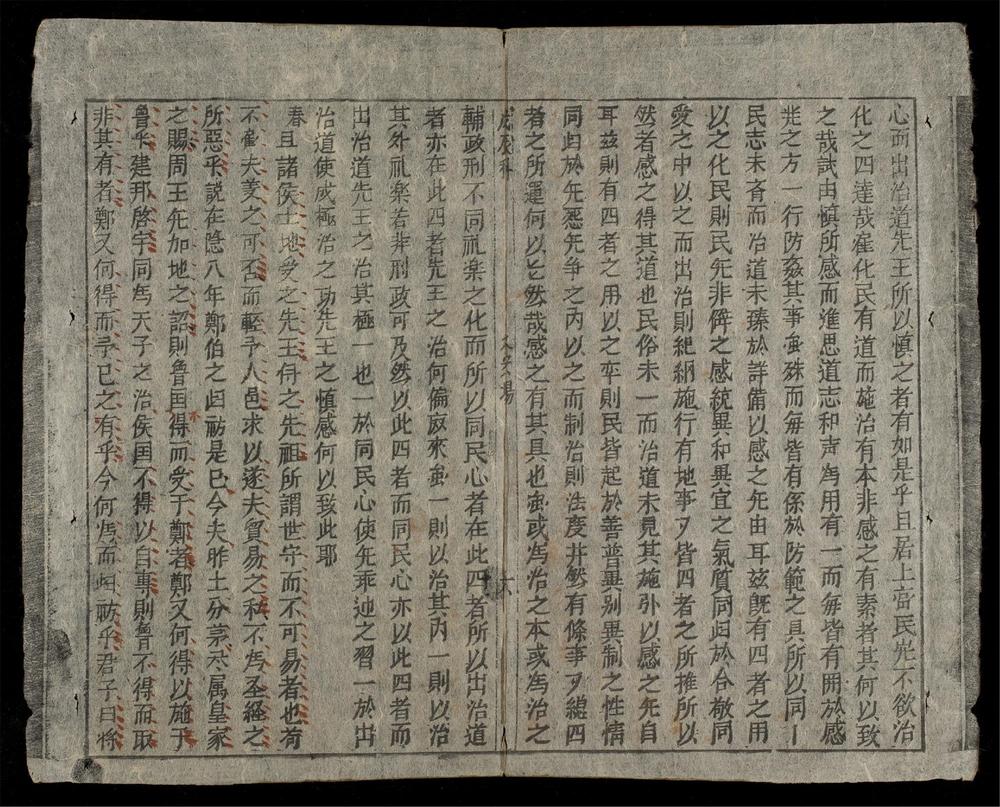 心而出治道先王所以慎之者有如是乎且居上當民先不欲治
化之四達哉雀化民有道而施治有本非感之有素者其何以致
之哉試由慎所感而進思道志和声爲用有一而毎皆有関於感
之方一行防姦其事虽殊而毎皆有係於防範之具所以同
民志未斉而治道未臻於詳備以感之先由耳兹既有四者之用
以之化民則民先非僻之感統異和異宜之氣質同歸於合敬同
愛之中以之而出治則紀綱施行有地事又皆四者之所推所以
然者感之得其道也民俗未一而治道未見其施引以感之先自
耳兹則有四者之用以之率則民皆起於善普異别異制之性情
同歸於先惡先争之内以之而制治則法度井然有條事又總四
者之所運何以必然哉感之有其具也虽或爲治之本或爲治之
戊辰科
輔政刑不同礼楽之化而所以同民心者在此四者所以出治道
者亦在此四者先王之治何偏寂來虽一則以治其内一則以治
其外礼楽若非刑政可及然以此四者而同民心亦以此四者而
出治道先王之治其極一也一於同民心使先乖迎之習一於出
治道使咸極治之功先王之慎感何以致此耶
春且諸侯土地受之先王侍之先祖所謂世守而不可易者也苟
不奮夫義之可否而輕予人邑求以遂夫貿易之私不爲圣經之
所惡乎説在隐八年鄭伯之歸祊是已今夫昨土分茅六属皇家
之賜周王先加地之詔則魯囯得而受于鄭者鄭又何得以施于
魯乎建邦啓宇同爲天子之治侯囯不得以自專則魯不得而取
非其有者鄭又何得而予已之有乎今何爲而歸祊乎君子曰将